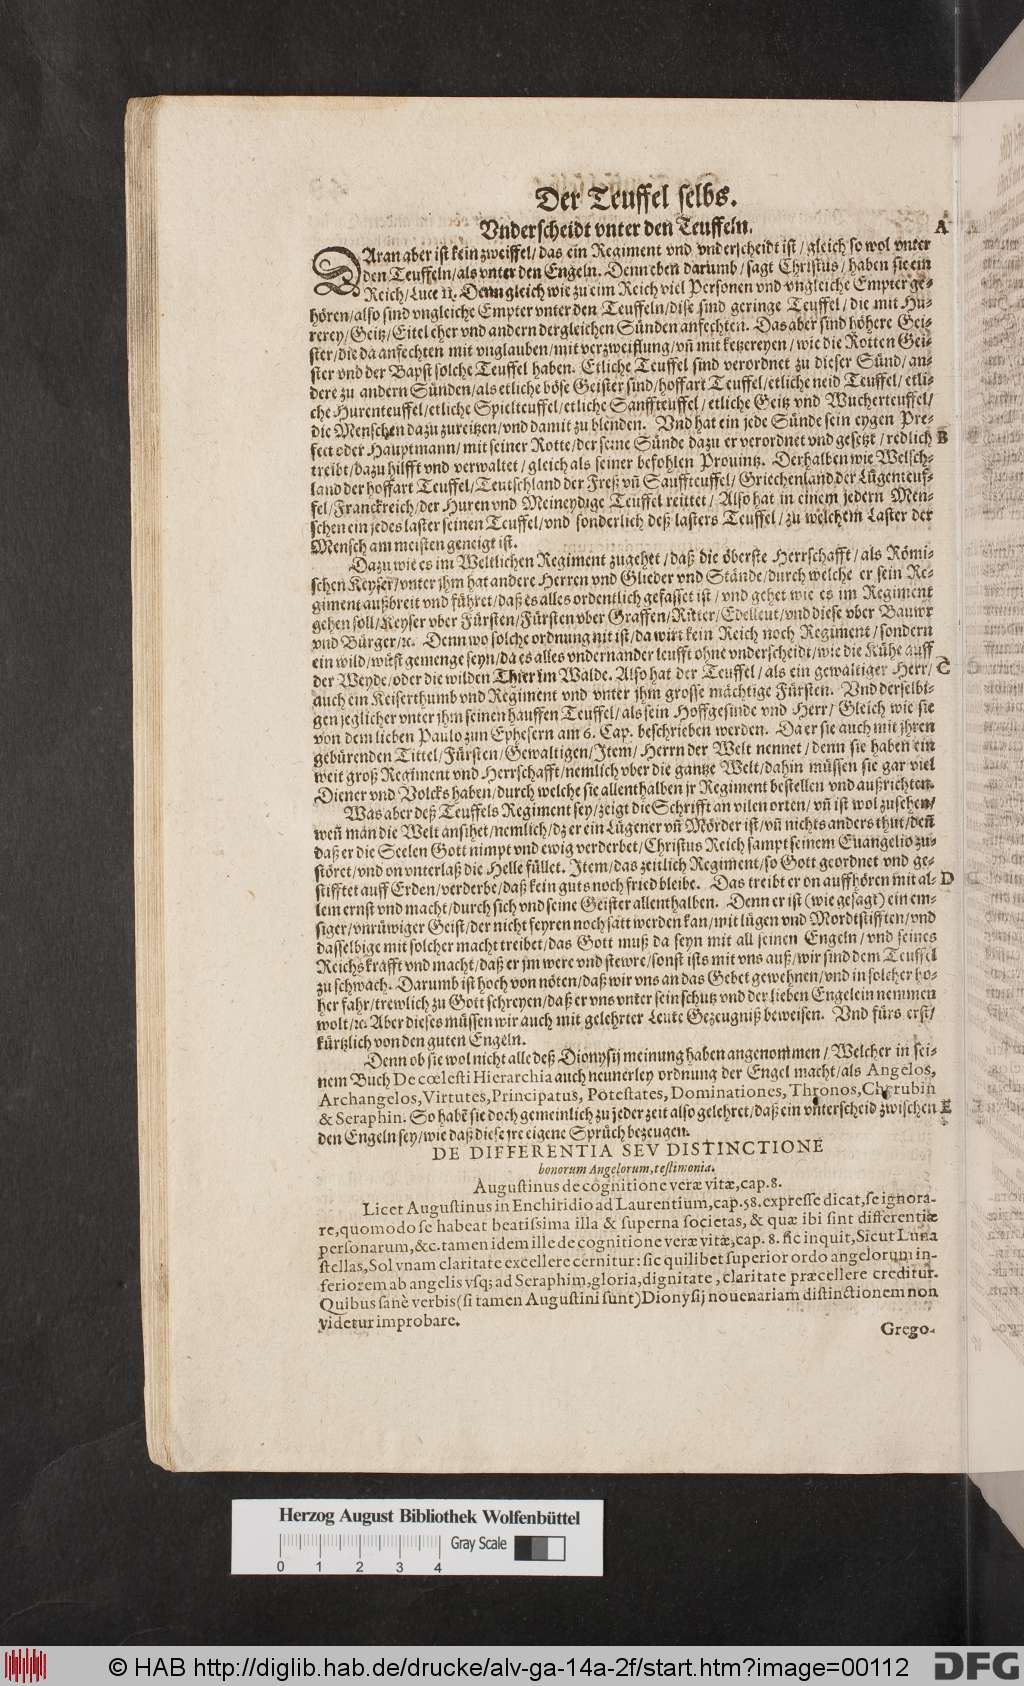 Der Teuffel selbs.
Vnderscheidt vnter den Teuffeln. A
DAran aber ist kein zweiffel/ das ein Regiment vnd vnderscheidt ist/ gleich so wol vnter
den Teuffeln/ als vnter den Engeln. Denn eben darumb/ sagt Christus/ haben sie ein
Reich/ Luce 11. Denn gleich wie zu eim Reich viel Personen vnd vngleiche Empter ge-
hören/ also sind vngleiche Empter vnter den Teuffeln/ dise sind geringe Teuffel/ die mit Hu-
rerey/ Geitz/ Eitel eher vnd andern dergleichen Sünden anfechten. Das aber sind höhere Gei-
ster/ die da anfechten mit vnglauben/ mit verzweiflung/ vñ mit ketzereyen/ wie die Rotten Gei-
ster vnd der Bapst solche Teuffel haben. Etliche Teuffel sind verordnet zu dieser Sünd/ an-
dere zu andern Sünden/ als etliche böse Geister sind/ hoffart Teuffel/ etliche neid Teuffel/ etli-
che Hurenteuffel/ etliche Spielteuffel/ etliche Sauffteuffel/ etliche Geitz vnd Wucherteuffel/
die Menschen dazu zureitzen/ vnd damit zu blenden. Vnd hat ein jede Sünde sein eygen Pre-
fect oder Hauptmann/ mit seiner Rotte/ der seine Sünde dazu er verordnet vnd gesetzt/ redlich B
treibt/ dazu hilfft vnd verwaltet/ gleich als seiner befohlen Prouintz. Derhalben wie Welsch-
land der hoffart Teuffel/ Teutschland der Freß vñ Sauffteuffel/ Griechenland der Lügenteuf-
fel/ Franckreich/ der Huren vnd Meineydige Teuffel reittet/ Also hat in einem jedern Men-
schen ein jedes laster seinen Teuffel/ vnd sonderlich deß lasters Teuffel/ zu welchem Laster der
Mensch am meisten geneigt ist.
Dazu wie es im Weltlichen Regiment zugehet/ daß die öberste Herrschafft/ als Römi-
schen Keyser/ vnter jhm hat andere Herren vnd Glieder vnd Stände/ durch welche er sein Re-
giment außbreit vnd führet/ daß es alles ordentlich gefasset ist/ vnd gehet wie es im Regiment
gehen soll/ Keyser vber Fürsten/ Fürsten vber Graffen/ Ritter/ Edelleut/ vnd diese vber Bauwr
vnd Bürger/ ꝛc. Denn wo solche ordnung nit ist/ da wirt kein Reich noch Regiment/ sondern
ein wild/ wüst gemenge seyn/ da es alles vndernander leufft ohne vnderscheidt/ wie die Kühe auff
der Weyde/ oder die wilden Thier im Walde. Also hat der Teuffel/ als ein gewaltiger Herr/ C
auch ein Keiserthumb vnd Regiment vnd vnter jhm grosse mächtige Fürsten. Vnd derselbi-
gen jeglicher vnter jhm seinen hauffen Teuffel/ als sein Hoffgesinde vnd Herr/ Gleich wie sie
von dem lieben Paulo zun Ephesern am 6. Cap. beschrieben werden. Da er sie auch mit jhren
gebürenden Tittel/ Fürsten/ Gewaltigen/ Item/ Herrn der Welt nennet/ denn sie haben ein
weit groß Regiment vnd Herrschafft/ nemlich vber die gantze Welt/ dahin müssen sie gar viel
Diener vnd Volcks haben/ durch welche sie allenthalben jr Regiment bestellen vnd außrichten.
Was aber deß Teuffels Regiment sey/ zeigt die Schrifft an vilen orten/ vñ ist wol zusehen/
weñ man die Welt ansihet/ nemlich/ dz er ein Lügener vñ Mörder ist/ vñ nichts anders thut/ deñ
daß er die Seelen Gott nimpt vnd ewig verderbet/ Christus Reich sampt seinem Euangelio zu-
störet/ vnd on vnterlaß die Helle füllet. Item/ das zeitlich Regiment/ so Gott geordnet vnd ge-
stifftet auff Erden/ verderbe/ daß kein guts noch fried bleibe. Das treibt er on auffhören mit al- D
lem ernst vnd macht/ durch sich vnd seine Geister allenthalben. Denn er ist (wie gesagt) ein em-
siger/ vnrüwiger Geist/ der nicht feyren noch satt werden kan/ mit lügen vnd Mordtstifften/ vnd
dasselbige mit solcher macht treibet/ das Gott muß da seyn mit all seinen Engeln/ vnd seines
Reichs krafft vnd macht/ daß er jm were vnd stewre/ sonst ists mit vns auß/ wir sind dem Teuffel
zu schwach. Darumb ist hoch von nöten/ daß wir vns an das Gebet gewehnen/ vnd in solcher ho-
her fahr/ trewlich zu Gott schreyen/ daß er vns vnter sein schutz vnd der lieben Engelein nemmen
wolt/ ꝛc. Aber dieses müssen wir auch mit gelehrter Leute Gezeugniß beweisen. Vnd fürs erst/
kürtzlich von den guten Engeln.
Denn ob sie wol nicht alle deß Dionysij meinung haben angenommen/ Welcher in sei-
nem Buch De cœlesti Hierarchia auch neunerley ordnung der Engel macht/ als Angelos,
Archangelos, Virtutes, Principatus, Potestates, Dominationes, Thronos, Cherubin
& Seraphin. So habẽ sie doch gemeinlich zu jeder zeit also gelehret/ daß ein vnterscheid zwischen E
den Engeln sey/ wie daß diese jre eigene Sprüch bezeugen.
DE DIFFERENTIA SEV DISTINCTIONE
bonorum Angelorum, testimonia.
Augustinus de cognitione veræ vitæ, cap. 8.
Licet Augustinus in Enchiridio ad Laurentium, cap. 58. expresse dicat, se ignora-
re, quomodo se habeat beatissima illa & superna societas, & quæ ibi sint differentiæ
personarum, &c. tamen idem ille de cognitione veræ vitæ, cap. 8. sic inquit, Sicut Luna
stellas, Sol vnam claritate excellere cernitur: sic quilibet superior ordo angelorum in-
feriorem ab angelis vsq; ad Seraphim, gloria, dignitate, claritate præcellere creditur.
Quibus sanè verbis (si tamen Augustini sunt) Dionysij nouenariam distinctionem non
videtur improbare.
Grego-
Herzog August Bibliothek Wolfenbüttel
Gray Scale
0 1 2 3 4
© HAB http://diglib.hab.de/drucke/alv-ga-14a-2f/start.htm?image=00112 DFG